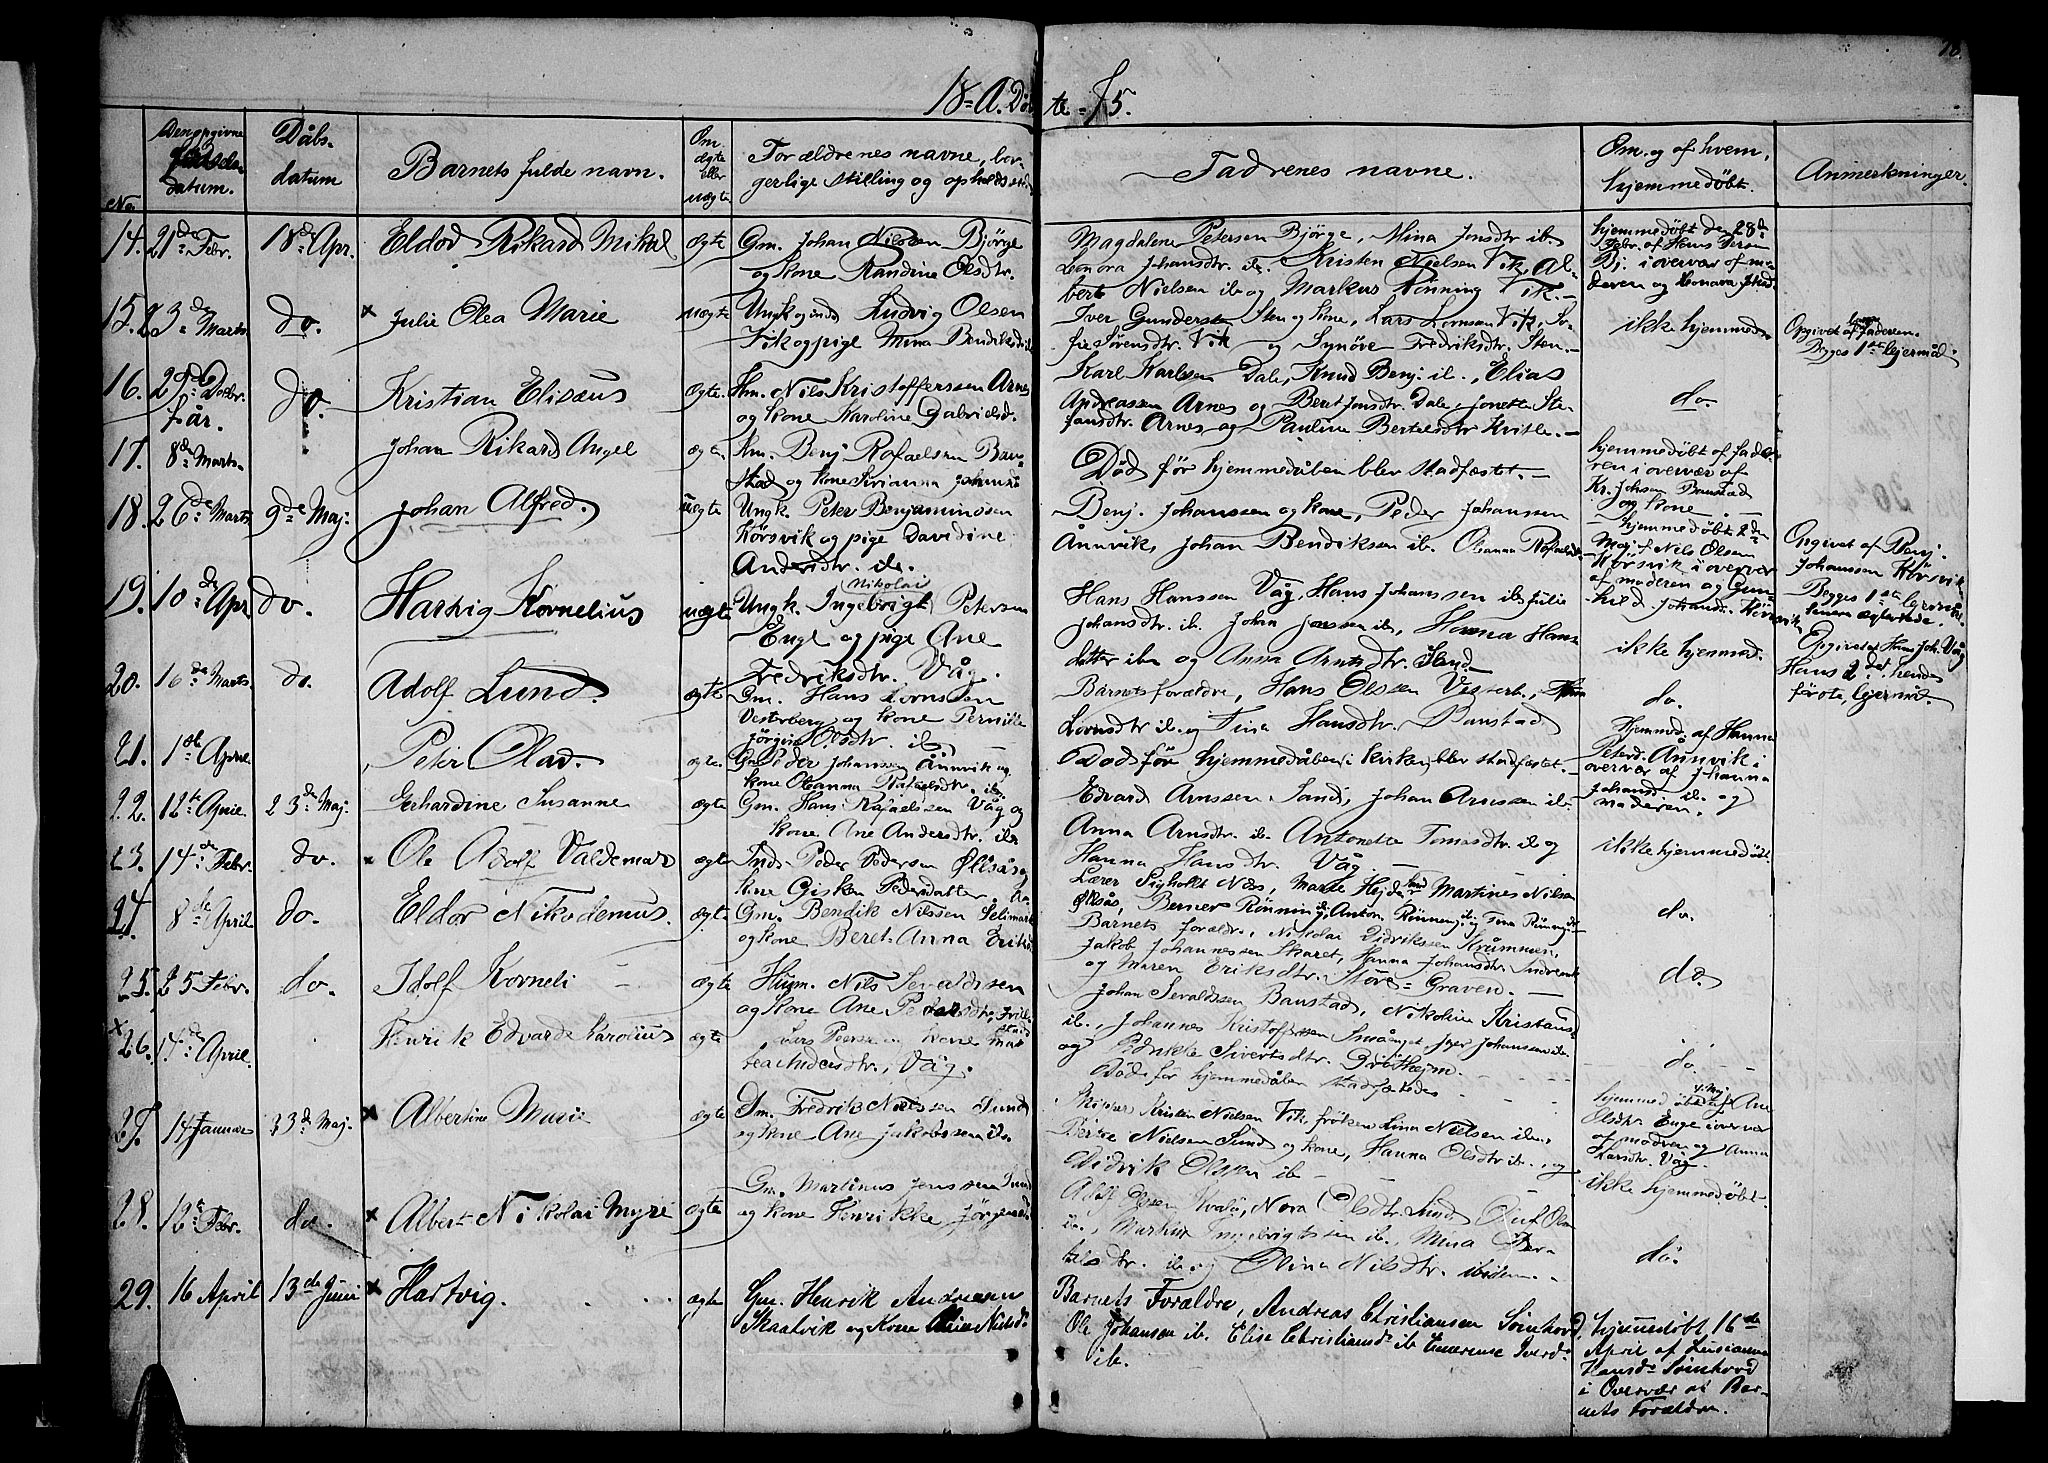 18=A. Døb
te=75.
No.
Den opgivne
datum.
Dåbs-
datum
Barnets fulde navn.
Om
ægte
eller
uægte
Forældrenes navne, bor-
gerlige stilling og opholdssted
Fadrenes navne.
Om og af hvem
hjemmedøbt.
Anmerkninger.
14. 21de Febr. 18de Apr. Eldod Rikard Mikal ægte
Gm. Johan Nilssen Bjørge
og kone Randine Olsdtr.
Magdalene Petersen Bjørge, Mina Jonsdtr ib.
Leonora Johansdtr. ib. Kristen Nielsen Vik, Al-
bert Nielsen ib og Markus Rønning Vik.
hjemmedøbt den 28de
Febr. af Hans Iversen
Bj. i overvær af mo-
deren og Leonora Johsd.
15. 23de Marts do. x Julie Olea Marie uægte
Ungk og inds Ludvig Olsen
Vik og pige Mina Bendiksdtr ib
Iver Gundersen Sten og kone, Lars Larnsen Vik, So-
fie Sørensdtr. Vik og Synøve Fredriksdtr. Sten.
ikke hjemmed
Opgivet af faderen.
Begges 1ste lejermål.
16. 29de Decbr.
f. år. do. Kristian Elisæus ægte.
Hm. Nils Kristofferssen Arnes
og kone Karoline Gabrielsd.
Karl Karlsen Dale, Knud Benj. ib., Elias
Andreassen Arnes og Beret Jonsdtr. Dale, Jonette Ste-
fansdtr. Arnes og Pauline Bertelsdtr Kvitle.
do.
17. 8de Marts Johan Rikard Angel ægte
Km. Benj Rafaelsen Ban-
stad og kone Sirianna Johansd
Død før hjemmedåben blev stadfæstet.
hjemmedøbt af fade-
ren i overvær af
Kr. Johsen Banstad
og kone.
18. 26de Marts 9de Maj. Johan Alfred. uægte
Ungk. Peter Benjaminsen
Kørsvik og pige Davidine
Andersdtr. ib.
Benj. Johanssen og kone, Peder Johanssen
Ånnvik, Johan Bendiksen ib. Oleanna Rafaelsd.
hjemmedøbt 2den
Maj af Nils Olsen
Kørsvik i overvær
af moderen og Gun-
hild Johansd. Kørsvik
Opgivet af Benj.
Johanssen Kørsvik
Begges 1ste lejermål.
Senere ægteviede.
19. 10de Apr do. Hartvig Kornelius uægte
Ungk. Ingebrigt (Nikolai) Petersen
Enge og pige Ane
Fredriksdtr. Våg.
Hans Hanssen Våg, Hans Johanssen ib. Julie
Johansdtr. ib. Johan Jonssen ib, Hanna Hans
datter ib og Anna Arntsdtr. Sand
ikke hjemmed.
Opgivet af Hans Joh. Våg
Hans 2det, hendes
første, lejermål.
20. 16de Marts do. Adolf Lund ægte
Gm. Hans Lornssen
Vesterberg og kone Pernille
Jørgine Olsdtr. ib.
Barnets forældre, Hans Olssen Vesterb.,
Lornsdtr ib. og Tina Hansdtr. Banstad
do.
21. 1ste April Peter Olav. ægte.
Gm Peder Johansen Ånnvik og
kone Oleanna Rafaelsdtr. ib.
Død før hjemmedåben (i kirken) blev stadfæstet.
Hjemmed. af Hanna
Petersd. Ånnvik i
overvær af Johanna
Johansd. ib. og
moderen.
22. 12te April 23de Maj. Gerhardine Susanne ægte
Gm. Hans Rafaelssen Våg og
kone Ane Andersdtr. ib.
Edvard Arnssen Sand, Johan Arnssen ib.
Anna Arnsdtr. ib. Antonette Tomasdtr. ib og
Hanna Hansdtr. Våg.
ikke hjemmedøbt.
23. 14de Febr. do. x Ole Adolf Valdemar ægte
Inds Peder Pedersen Øksås og
kone Gisken Pedersdatter
Lærer Sigholt Næs, Marie Hejde, Martines Nilsen
Øksås, Berner Rønning ib, Anton Rønning ib og Tina Rønning ib.
do.
24. 8de April do. Eldor Nikodemus. ægte.
Gm. Bendik Nilssen
og kone Beret-Anna Eriksd.
Barnets forældre, Nikolai Didrikssen Krummen,
Jakob Johannessen Skaret, Hanna Johansdtr.
og Maren Eriksdtr. Store=Graven.
do.
25. 25 Febr. do. Idolf Korneli ægte
Husm. Nils Sevaldssen
og kone Ane Pedersdtr.
Johan Sevaldssen Banstad, Nikoline Kristiansd
ib., Johannes Kristoffersen Småenget, Iver Johanssen ib.
og Didrikke Sivertsdtr. Brøthejm.
x
26. 14de April Henrik Edvard Karolius ægte
Lars Peersen kone
Andersdtr., Våg.
Døde før hjemmedåben stadfæstedes
do.
27. 14 Januar 23de Maj. x Albertine Marie ægte
Gm. Fredrik Nielssen Sund
og kone Ane Jakobssen ib.
Skipper Kristen Nielsen Vik, frøken Lina Nielsen ib.,
Bertie Nielsen Sund og kone, Hanna Olsdtr ib., og
Didrik Olssen ib
hjemmedøbt af Ane
Olsdtr. Enge i overvær
af modren og Anna
Larsdtr. Våg.
28. 12te Febr. do. x Albert Nikolai Myre ægte
Gm. Martinus Jenssen Sund
og kone Henrikke Jørgensd.
Adolf Olssen Kvalø, Nora Olsdtr. Sund, Oluf Olsen
ib., Markus Ingebrigtssen ib., Mina Ber-
telsdtr. ib og Olina Nilsdtr. ibidem.
ikke hjemmedøbt.
do.
29. 16 April 13de Juni x Hartvig. ægte
Gm. Henrik Andreasen
Skaalvik og Kone Nielsd.
Barnets Forældre, Andreas Christiansen Sørnhovd,
Ole Johansen ib. Elise Christiansd. ib Emerense Iversd.
ib.
hjemmedøbt, 16de
April af Lusianna
Hansd. Sørnhovd
i Overvær af Bar-
nets Forældre.